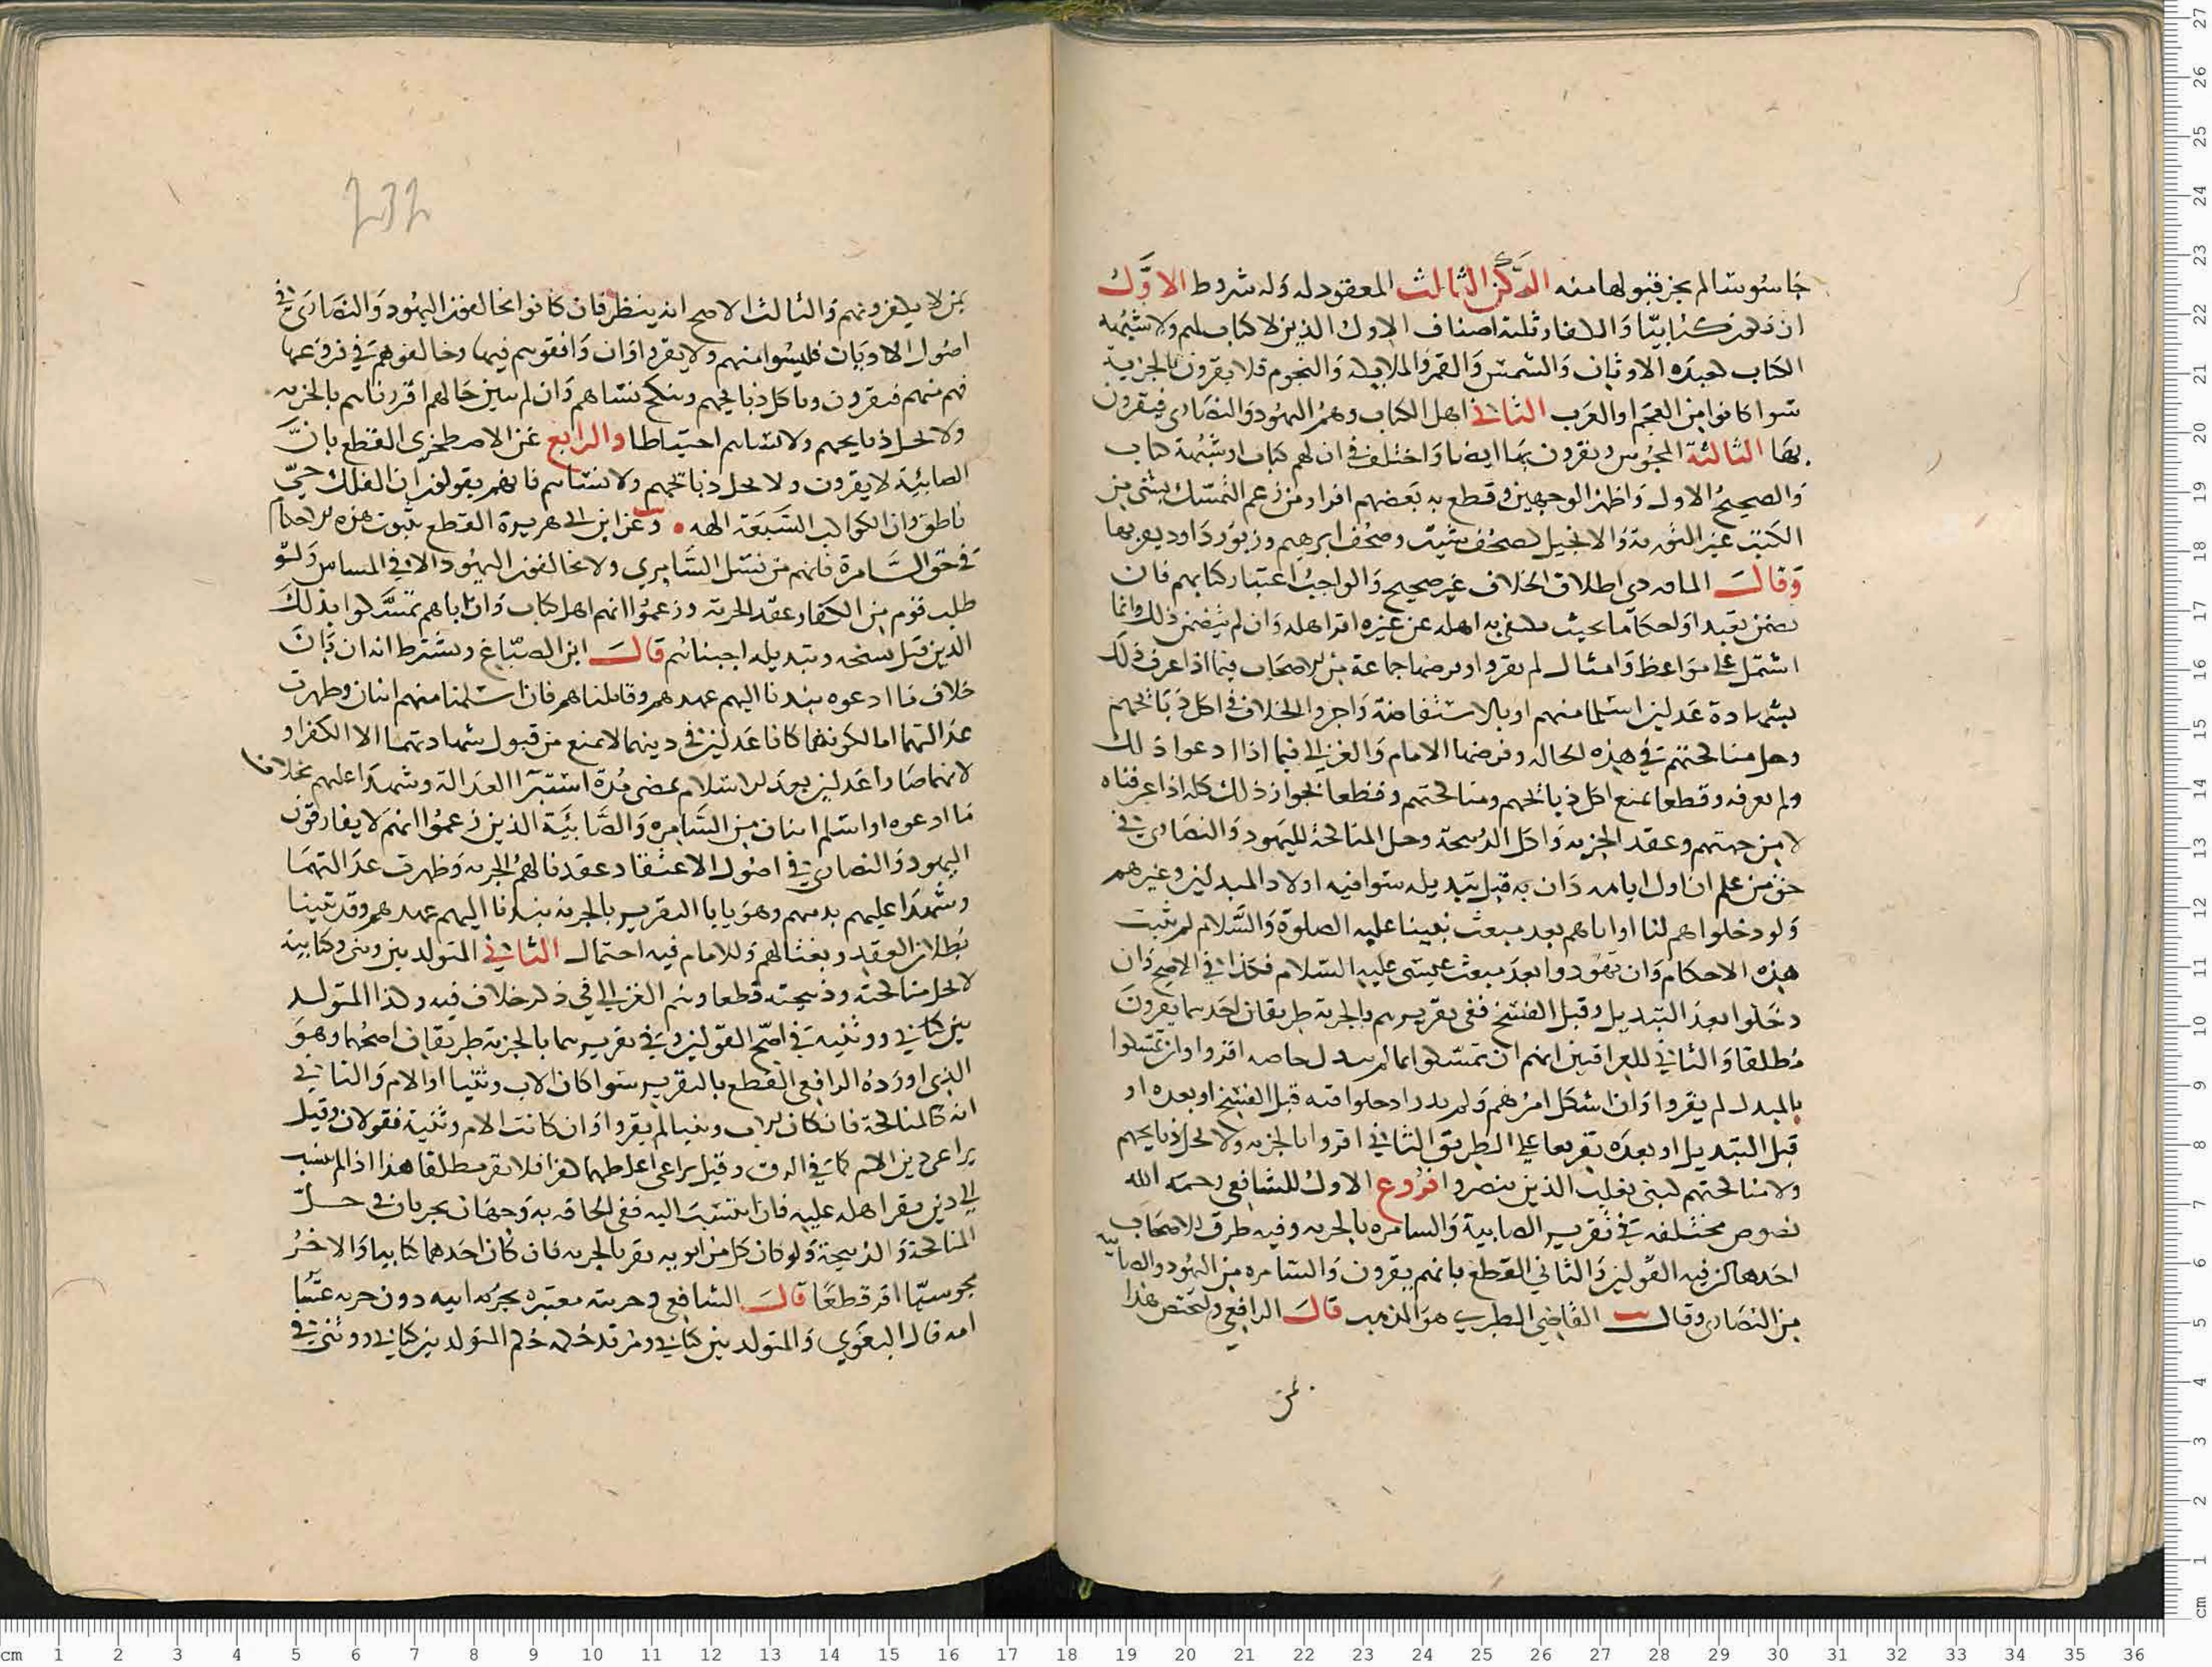 جاسوسا لم يجز قبولها منه الركن الثالث المعقود له وله شروط الاول
ان يكون كتابيا والكفار ثلثة اصناف الاول الذين لا كتاب لهم ولا شبهة
الكتاب كعبدة الاوثان والشمس والقمر والملايكة والنجوم فلا يقرون بالجزية
سوا كانوا من العجم او العرب الثاني اهل الكتاب وهم اليهود والنصارى فيقرون
بها الثالثة المجوس ويقرون بها ايضا واختلف في ان لهم كتاب او شبهة كتاب
والصحيح الاول واظهر الوجهين وقطع به بعضهم اقرار من زعم التمسك بشي من
الكتب غير التورية والانجيل كصحف شيث وصحف ابرهيم وزبور داود يعربها
وقال الماوردي اطلاق الخلاف غير صحيح والواجب اعتبار كتابهم فان
تضمن تعبدا واحكاما بحيث يكتفي به اهله عن غيره اقر اهله وان لم يتضمن ذلك وانما
اشتمل على مواعظ وامثال لم يقروا وفرضها جماعة من الاصحاب فيما اذا عرف ذلك
بشهادة عدلين اسلما منهم او بالاستفاضة واجروا الخلاف في اكل ذبائحهم
وحل مناكحتهم في هذه الحالة وفرضها الامام والغزالي فيما اذا ادعوا ذلك
ولم نعرفه وقطعا بمنع اكل ذبائحهم ومناكحتهم وقطعا بجواز ذلك كله اذا عرفناه
لا من جهتهم وعقد الجزية واكل الذبيحة وحل المناكحة لليهود والنصارى في
حق من علم ان اول ابايه دان به قبل تبديله سوا فيه اولاد المبدلين وغيرهم
ولو دخلوا هم لنا او اباهم بعد مبعث نبينا عليه الصلوة والسلام لم تثبت
هذه الاحكام وان تهودوا بعد مبعث عيسى عليه السلام فكذا في الاصح وان
دخلوا بعد التبديل وقبل الفسخ ففي تقريرهم بالجزية طريقان احدهما يقرون
مطلقا والثاني للعراقيين انهم ان تمسكوا بما لم يبدل اقروا وان تمسكوا
بالمبدل لم يقروا وان اشكل امرهم ولم يدر ادخلوا فيه قبل الفسخ او بعده او
قبل التبديل او بعده تفريعا على الطريق الثاني اقروا بالجزية ولا تحل ذبايحهم
ولا مناكحتهم لبني تغلب الذين تنصروا فروع الاول للشافعي رحمه الله
نصوص مختلفة في تقرير الصابية والسامرة بالجزية وفيه طرق للاصحاب
احدها كون فيه القولين والثاني القطع بانهم يقرون والسامرة من اليهود والصابية
من النصارى وقال القاضي الطبري هو المذهب قال الرافعي ويختص هذا
بمن
232
بمن لا يكفرونهم والثالث الاصح انه ينظر فان كانوا يخالفون اليهود والنصارى في
اصول الاديان فليسوا منهم ولا يقروا وان وافقوهم فيها وخالفوهم في فروعها
فهم منهم فيقرون وناكل ذبايحهم وننكح نساهم وان لم يتبين حالهم اقررناهم بالجزية
ولا تحل ذبايحهم ولا نساهم احتياطا والرابع عن الاصطخري القطع بان
الصابئية لا يقرون ولا يحل ذباتحهم ولا نساهم فانهم يقولون ان الفلك حي
ناطق وان الكواكب السبعة الهه وعن ابن ابي هريرة القطع بثبوت هذه الاحكام
في حق السامرة فانهم من نسل السامري ولا يخالفون اليهود الا في المساس ولو
طلب قوم من الكفار عقد الجزية وزعموا انهم اهل كتاب وان اباهم تمسكوا بذلك
الدين قبل نسخه وتبديله اجبناهم قال ابن الصباغ ويشترط انه ان بان
خلاف ما ادعوه نبذنا اليهم عهدهم وقاتلناهم فان اسلمنا منهم اثنان وظهرت
عدالتهما اما لكونهما كانا عدلين في دينهما لا يمنع من قبول شهادتهما الا الكفر او
لانهما صارا عدلين بعد الاسلام بمضي مدة استبرا العدالة وشهدا عليهم بخلاف
ما ادعوه او اسلم اثنان من السامرة والصابئية الذين زعموا انهم لا يفارقون
اليهود والنصارى في اصول الاعتقاد عقدنا لهم الجزية وظهرت عدالتهما
وشهدا عليهم بدينهم وهو يابا التقرير بالجزية نبذنا اليهم عهدهم وقد تبينا
بطلان العقد وبعثنا لهم وللامام فيه احتمال الثاني المتولد بين وثني وكتابية
لا تحل مناكحته وذبيحته قطعا وهم الغزالي في ذكر خلاف فيه وكذا المتولد
بين كتابي ووثنية في اصح القولين وفي تقريرهما بالجزية طريقان اصحهما وهو
الذي اورده الرافعي القطع بالتقرير سوا كان الاب وثنيا او الام والثاني
انه كالمناكحة فان كان الاب وثنيا لم يقر وان كانت الام وثنية فقولان وقيل
يراعى دين الام كما في الرق وقيل يراعى اغلظهما كفرا فلا تقر مطلقا هذا اذا لم ينتسب
الى دين يقر اهله عليه فان انتسب اليه ففي الحاقه به وجهان يجريان في حل
المناكحة والذبيحة ولو كان كل من ابويه يقر بالجزية فان كان احدهما كتابيا والاخر
مجوسيا اقر قطعا قال الشافعي وجزيته معتبرة بجزية ابيه دون جزية
امه قال البغوي والمتولد بين كتابي ومرتد حكم المتولد بين كتابي ووثني في